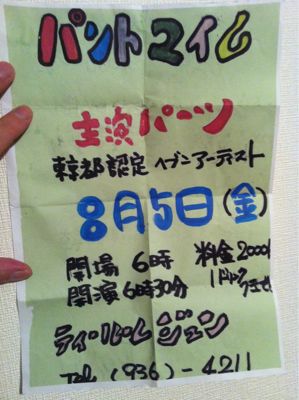 パントマイム
主演パーツ
東京都認定ヘブンアーティスト
8月5日(金)
開場 6時 料金2000円
開演6時30分 1ドリンク
ティールーム ジェン
Tel (936)-4211